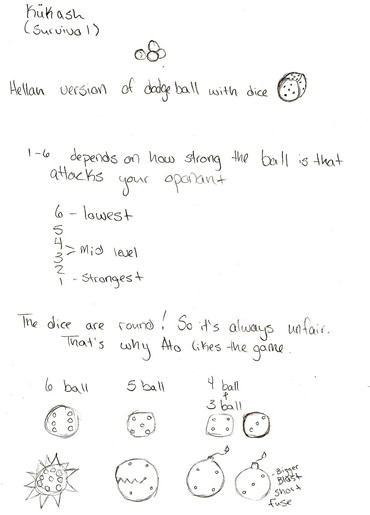 Kükash
(survival)
Hellan version of dodge ball with dice
1-6 depends on how strong the ball is that
attacks your oponant
6 - lowest
5
4
3 > Mid level
2
1 - strongest
The dice are round! So it's always unfair.
That's why Ato likes the game.
6 ball
5 ball
4 ball
+
3 ball
- Bigger
Blast
short
fuse